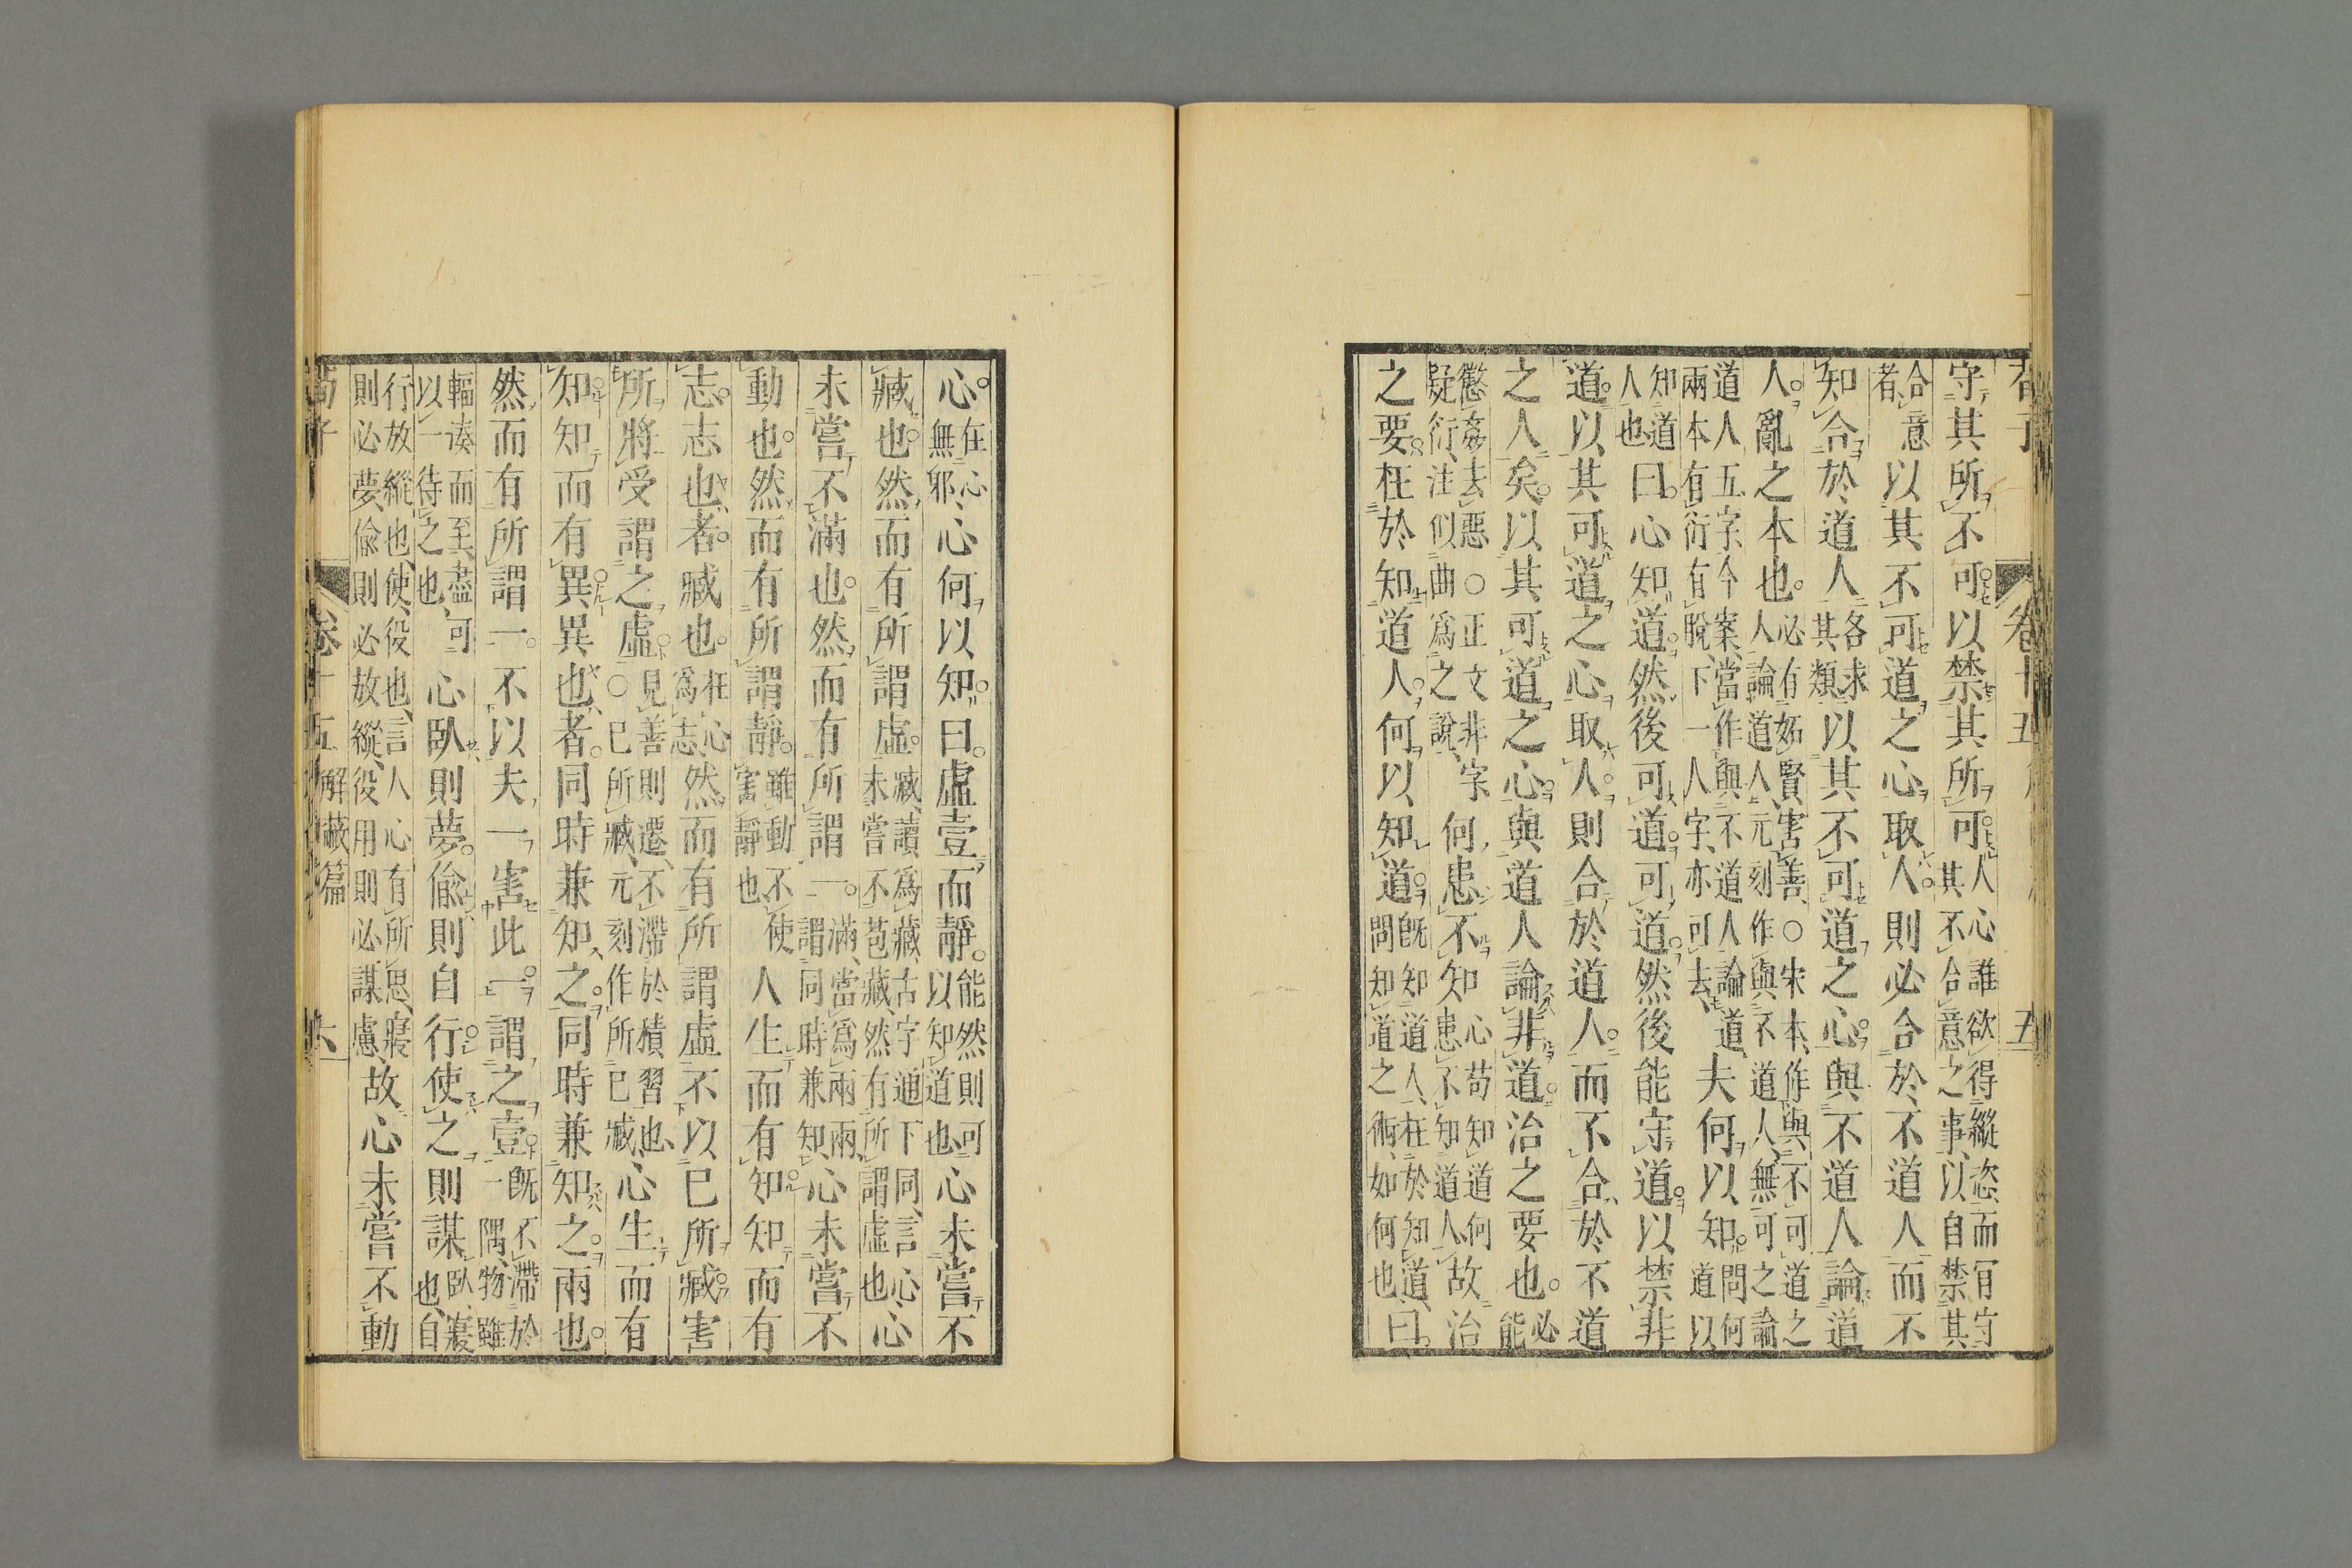 荀子 卷十五 五
守其所不可以禁其所可人心誰欲得縱恣而肎守其不合意之事以自禁其
合意者以其不可道之心取人則必合於不道人而不
知合於道人各求其類以其不可道之心與不道人論道
人亂之本也必有妬賢害善○宋本作與不可道之人論道人元刻作與不道人無可之論
道人五字今案當作與不道人論道兩本有衍有脫下一人字亦可去夫何以知問何道以
知道人也曰心知道然後可道可道然後能守道以禁非
道以其可道之心取人則合於道人而不合於不道
之人矣以其可道之心與道人論非道治之要也必能
懲姦去惡○正文非字疑衍注似曲爲之說何患不知心苟知道何患不知道人故治
之要在於知道人何以知道旣知道人在於知道問知道之術如何也曰
心在心無邪心何以知曰虛壹而靜能然則可以知道也心未嘗不
臧也然而有所謂虛臧讀爲藏古字通下同言心未嘗不苞藏然有所謂虛也心
未嘗不滿也然而有所謂一滿當爲兩兩謂同時兼知心未嘗不
動也然而有所謂靜雖動不使害靜也人生而有知知而有
志志也者臧也在心爲志然而有所謂虛不以已所臧害
所將受謂之虛見善則遷不滯於積習也○已所臧元刻作所已臧心生而有
知知而有異異也者同時兼知之同時兼知之兩也
然而有所謂一不以夫一害此一謂之壹旣不滯於一隅物雖
輻湊而至盡可以一待之也心臥則夢偷則自行使之則謀臥寢也自
行放縱也使役也言人心有所思寢則必夢偷則必放縱役用則必謀慮故心未嘗不動
荀子 卷十五 解蔽篇 六